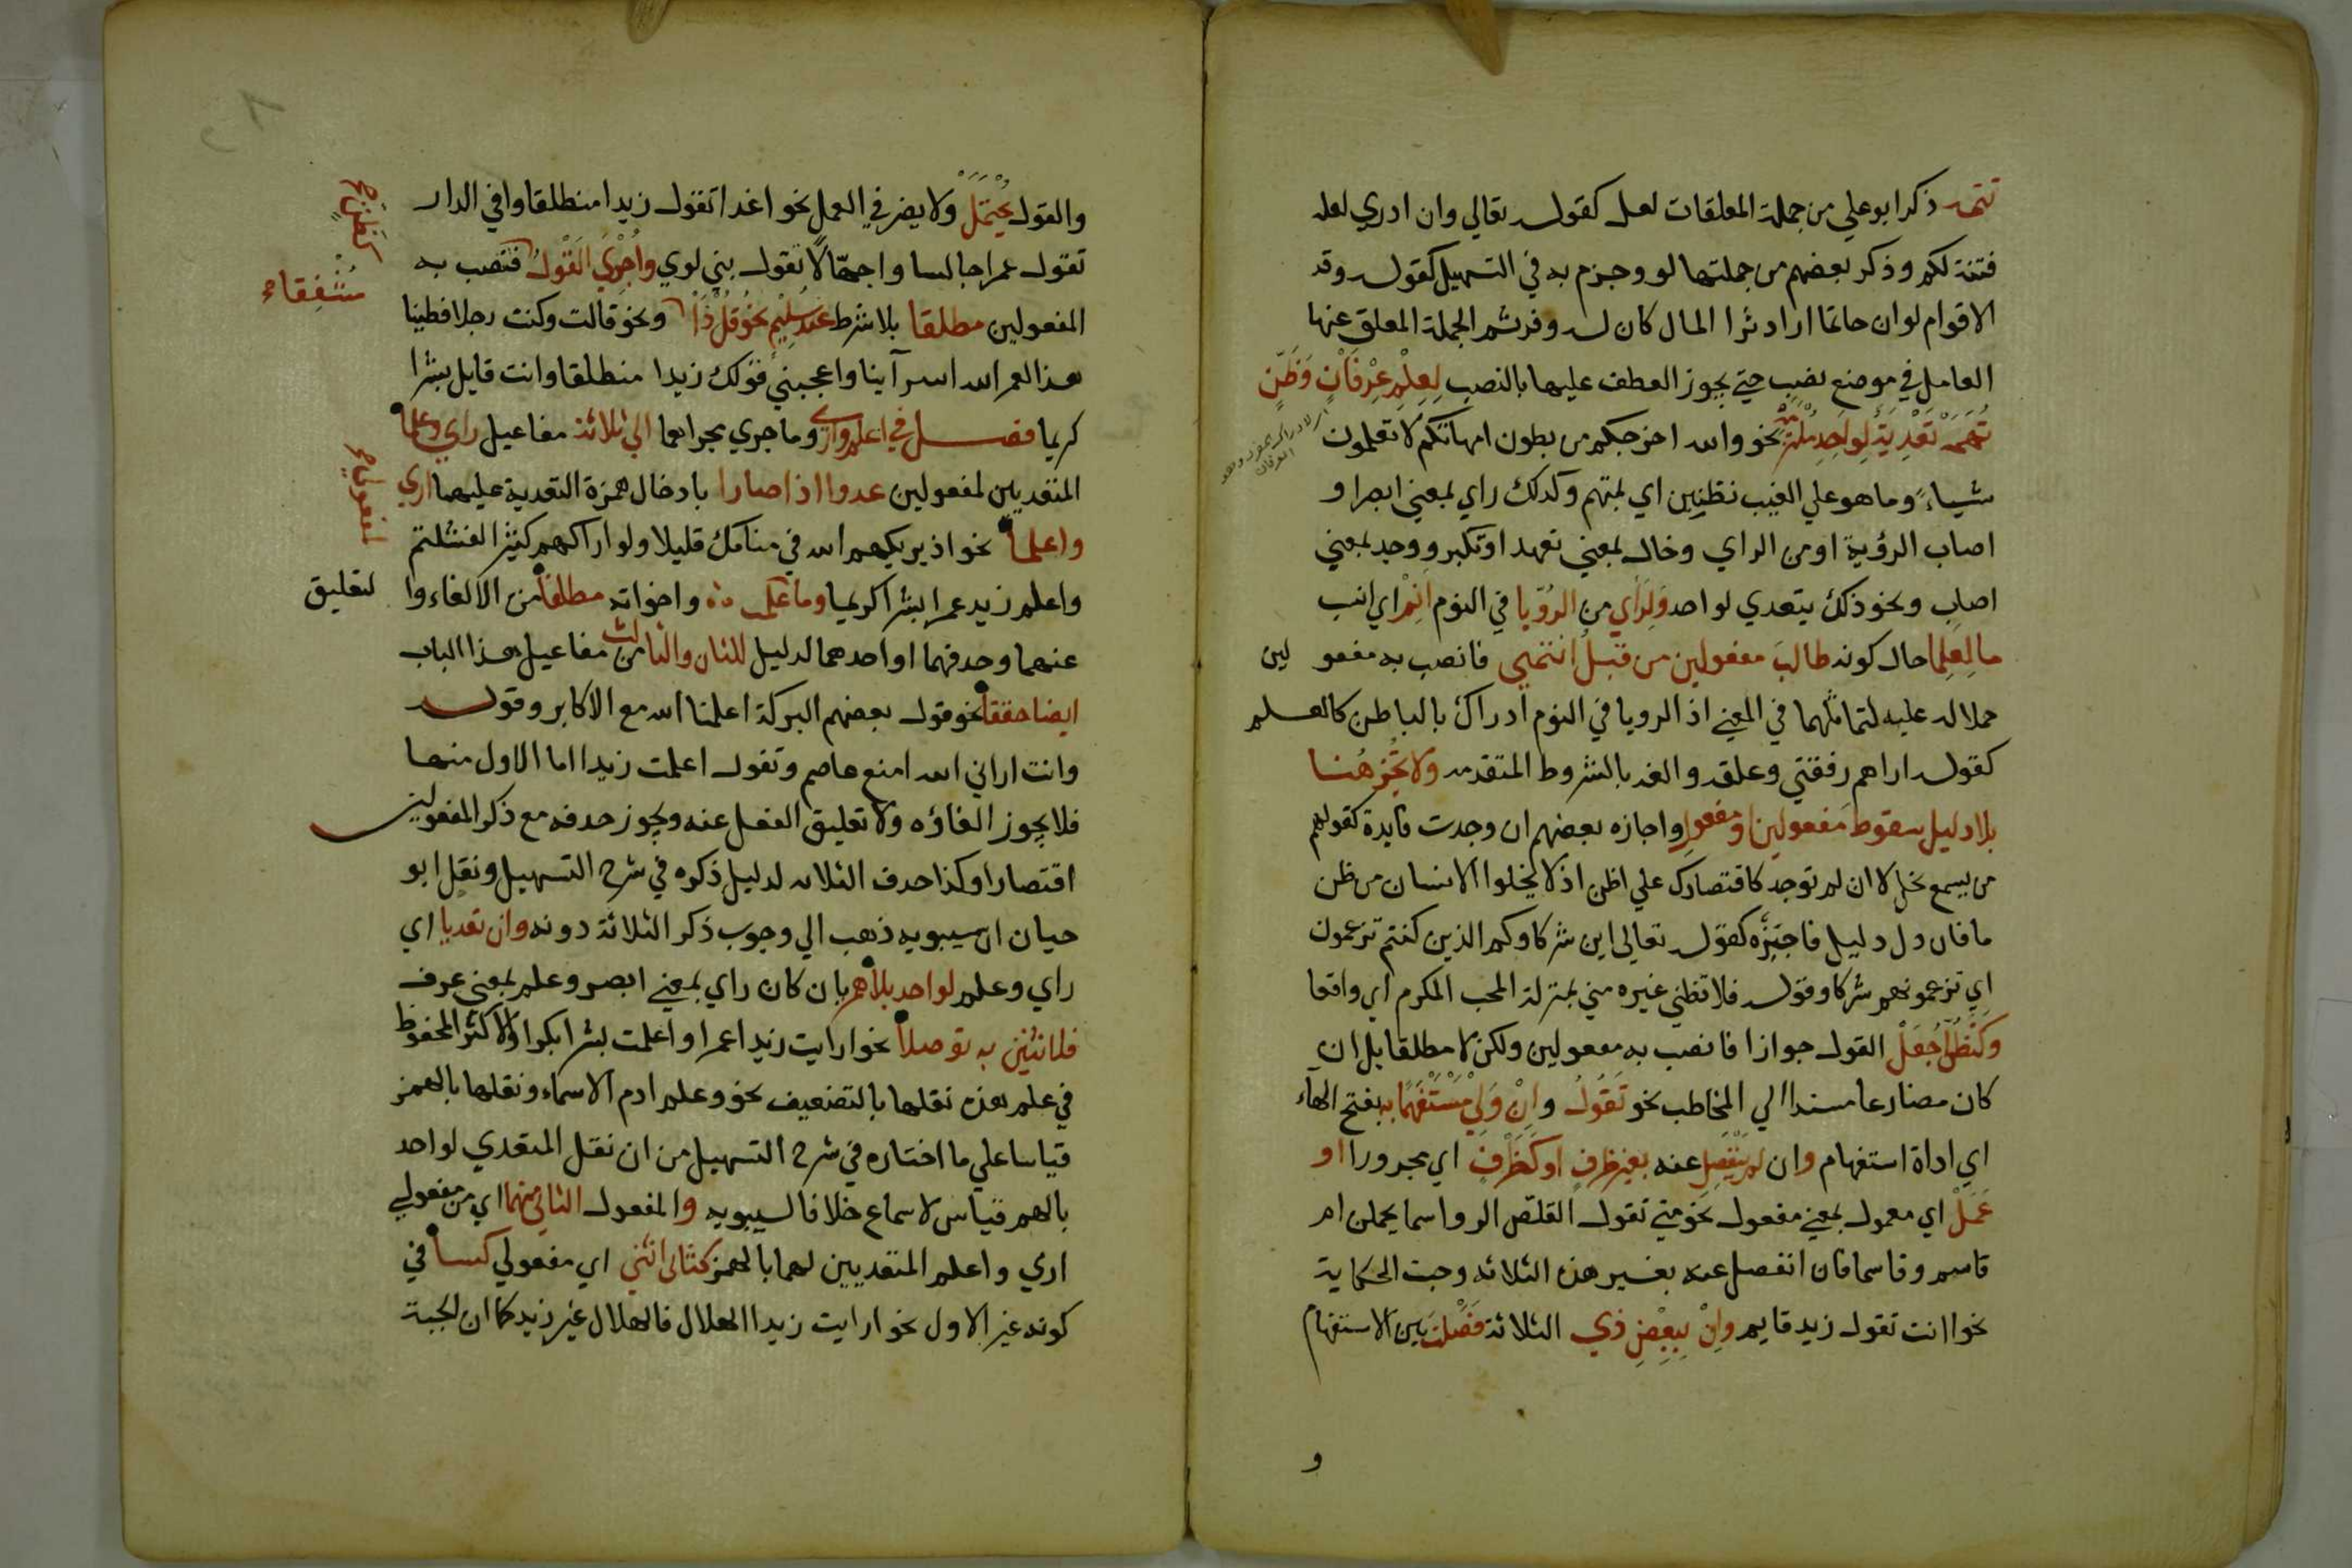 تتمه ذكر ابو علي من جملة المعلقات لعل كقوله تعالي وان ادري لعله
فتنة لكم وذكر بعضهم من جملتها لو وجزم به في التسهيل كقوله وقد
الاقوام لو ان حاتما اراد ثرا المال كان له وفر ثم الجملة المعلق عنها
العامل في موضع نصب حتي يجوز العطف عليها بالنصب لِعِلْمِ عِرْفَانٍ وَظَنّ
تُهَمَهْ تَعْدِيَةٌ لِوَاحِدٍ مُلْتَزَمَهْ نحو والله اخرجكم من بطون امهاتكم لا تعلمون
شيياء وما هو علي الغيب بظنين اي بمتهم وكذلك راي بمعني ابصر او
اصاب الرؤية او من الراي وخال بمعني تعهد او تكبر ووجد بمعني
اصاب ونحو ذلك يتعدي لواحد وَلِرَأَي من الرُؤيا في النوم انْمِ اي انسب
ما لِعَلِمَا حال كونه طالبَ مفعولين من قَبْلُ انتَمَي فانصب به مفعو لين
حملا له عليه لتماثلهما في المعني اذ الرويا في النوم ادراك بالباطن كالعلم
كقوله اراهم رفقتي وعلقه والغه بالشروط المتقدمه ولا تُجْزِ هُنَا
بلا دليل سقوط مَفعولين او مفعولِ واجازه بعضهم ان وجدت فايدة كقولهم
من يسمع يخل لا ان لم توجد كاقتصارك علي اظن اذ لا يخلوا الانسان من ظن
ما فان دل دليل فاجِزْه كقوله تعالي اين شركاوكم الذين كنتم تزعمون
اي تزعمونهم شركا وقوله فلا تظني غيره مني بمنزلة المحب المكرم اي واقعا
وَكَتَظُنُّ اجْعَلْ القول جوازا فانصب به مفعولين ولكن لا مطلقا بل ان
كان مضارعا مسندا الي المخاطب نحو تَقُولُ وانْ وَلِيْ مُسْتَفْهَمًا به بفتح الهآء
اي اداة استفهام وان لم يَنْفَصِلِ عنه بغير ظرفٍ او كَظَرْفٍ اي مجرورا او
عَمَلْ اي معمول بمعني مفعول نحو متي تقول القلص الرواسما يحملن ام
قاسم وقاسما فان انفصل عنه بغير هذه الثلاثه وجبت الحكاية
نحو اانت تقول زيد قايم وانْ بِبَعْضِ ذي الثلاثة فَصَلْتَ بين الاستفهام
و
والقول يُحْتَمَلْ ولا يضر في العمل نحو اغدا تقول زيدا منطلقا وافي الدار
تقول عمرا جالسا واجهّالًا تقول بني لوي واُجْرِيَ القَوْلُ فتنصب به
المفعولين مطلقا بلا شرط عند سليم نحو قل ذا ونحو قالت وكنت رجلا فطينا
مُشْفِقَا
هذا لعمر الله اسرآينا واعجبني قولك زيدا منطلقا وانت قايل بشرا
كريما فصل في اعلم واري وما جري مجراهما الي ثلاثة مفاعيل راي وعلما
المتعديين لمفعولين عدوا اذا صارا بادخال همزة التعدية عليهما اري
واعلما نحو اذ يريكهم الله في منامك قليلا ولو اراكهم كثيرا لفشلتم
واعلم زيد عمرا بشرا كريما وما عُلِمَتْ واخواته مطلقا من الالغاء وا لتعليق
عنهما وحذفهما او احدهما لدليل للثان والثالث من مفاعيل هذا الباب
ايضا حققا نحو قول بعضهم البركة اعلمنا الله مع الاكابر وقوله
وانت اراني الله امنع عاصم وتقول اعلمت زيدا اما الاول منها
فلا يجوز الغاؤه ولا تعليق الفعل عنه ويجوز حذفه مع ذكر المفعولين
اقتصارا وكذا حذف الثلاثه لدليل ذكره في شرح التسهيل ونقل ابو
حيان ان سيبويه ذهب الي وجوب ذكر الثلاثة دونه وان تعديا اي
راي وعلم لواحد بلا همز بان كان راي بمعني ابصر وعلم بمعني عرف
فلاثنين به توصلا نحو ارايت زيدا عمرا واعلمت بشرا بكرا والاكثر المحفوظ
في علم هذه نقلها بالتضعيف نحو وعلم ادم الاسماء ونقلها بالهمز
قياسا علي ما اختاره في شرح التسهيل من ان نقل المتعدي لواحد
بالهمز قياس لا سماع خلافا لسيبويه والمفعول الثاني منهما اي من مفعولي
اري واعلم المتعديين لهما بالهمز كثاني اثني اي مفعولي كسا في
كونه غير الاول نحو ارايت زيدا الهلال فالهلال غير زيد كما ان الجبة